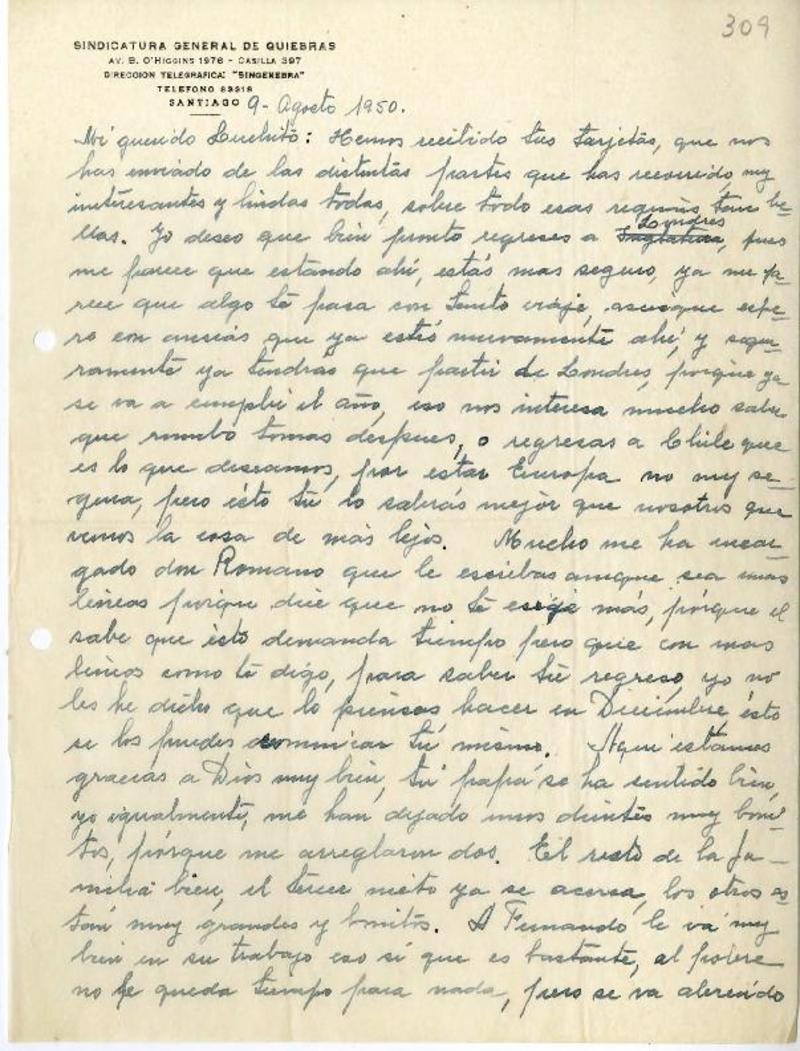 309
SINDICATURA GENERAL DE QUIEBRAS
AV. B. O'HIGGINS 1976 - CASILLA 397
DIRECCION TELEGRAFICA: "SINGENEBRA"
TELEFONO 83218
SANTIAGO 9- Agosto 1950.
Mi querido Luchito: Hemos recibido tus tarjetas, que nos
has enviado de las distintas partes que has recorrido, muy
interesantes y lindas todas, sobre todo esas regiones tan be-
llas. Yo deseo que bien pronto regreses a Inglaterra Londres, pues
me parece que estando ahí, estás mas seguro, ya me pa-
rece que algo te pasa con tanto viaje, asi que espe-
ro con ansias que ya estés nuevamente ahí, y segu-
ramente ya tendras que partir de Londres, porque ya
se va a cumplir el año, eso nos interesa mucho saber
que rumbo tomas despues, o regresas a Chile que
es lo que deseamos, por estar Europa no muy se-
gura, pero ésto tú lo sabrás mejor que nosotros que
vemos la cosa de más lejos. Mucho me ha encar-
gado don Romano que le escribas aunque sea unas
lineas porque dice que no te exige más, porque el
sabe que ésto demanda tiempo pero que con unas
lineas como te digo, para saber tu regreso, yo no
les he dicho que lo piensas hacer en Diciembre, ésto
se los puedes comunicar tú mismo. Aquí estamos
gracias a Dios muy bien, tu papá se ha sentido bien,
yo igualmente, me han dejado unos dientes muy boni-
tos, porque me arreglaron dos. El resto de la fa-
milia bien, el tercer nieto ya se acerca, los otros es-
tán muy grandes y bonitos. A Fernando le va muy
bien en su trabajo eso sí que es bastante, al pobre
no le queda tiempo para nada, pero se va abriendo